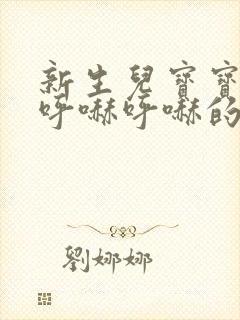 新生兒寶寶
呼嚇呼嚇的
劉娜娜